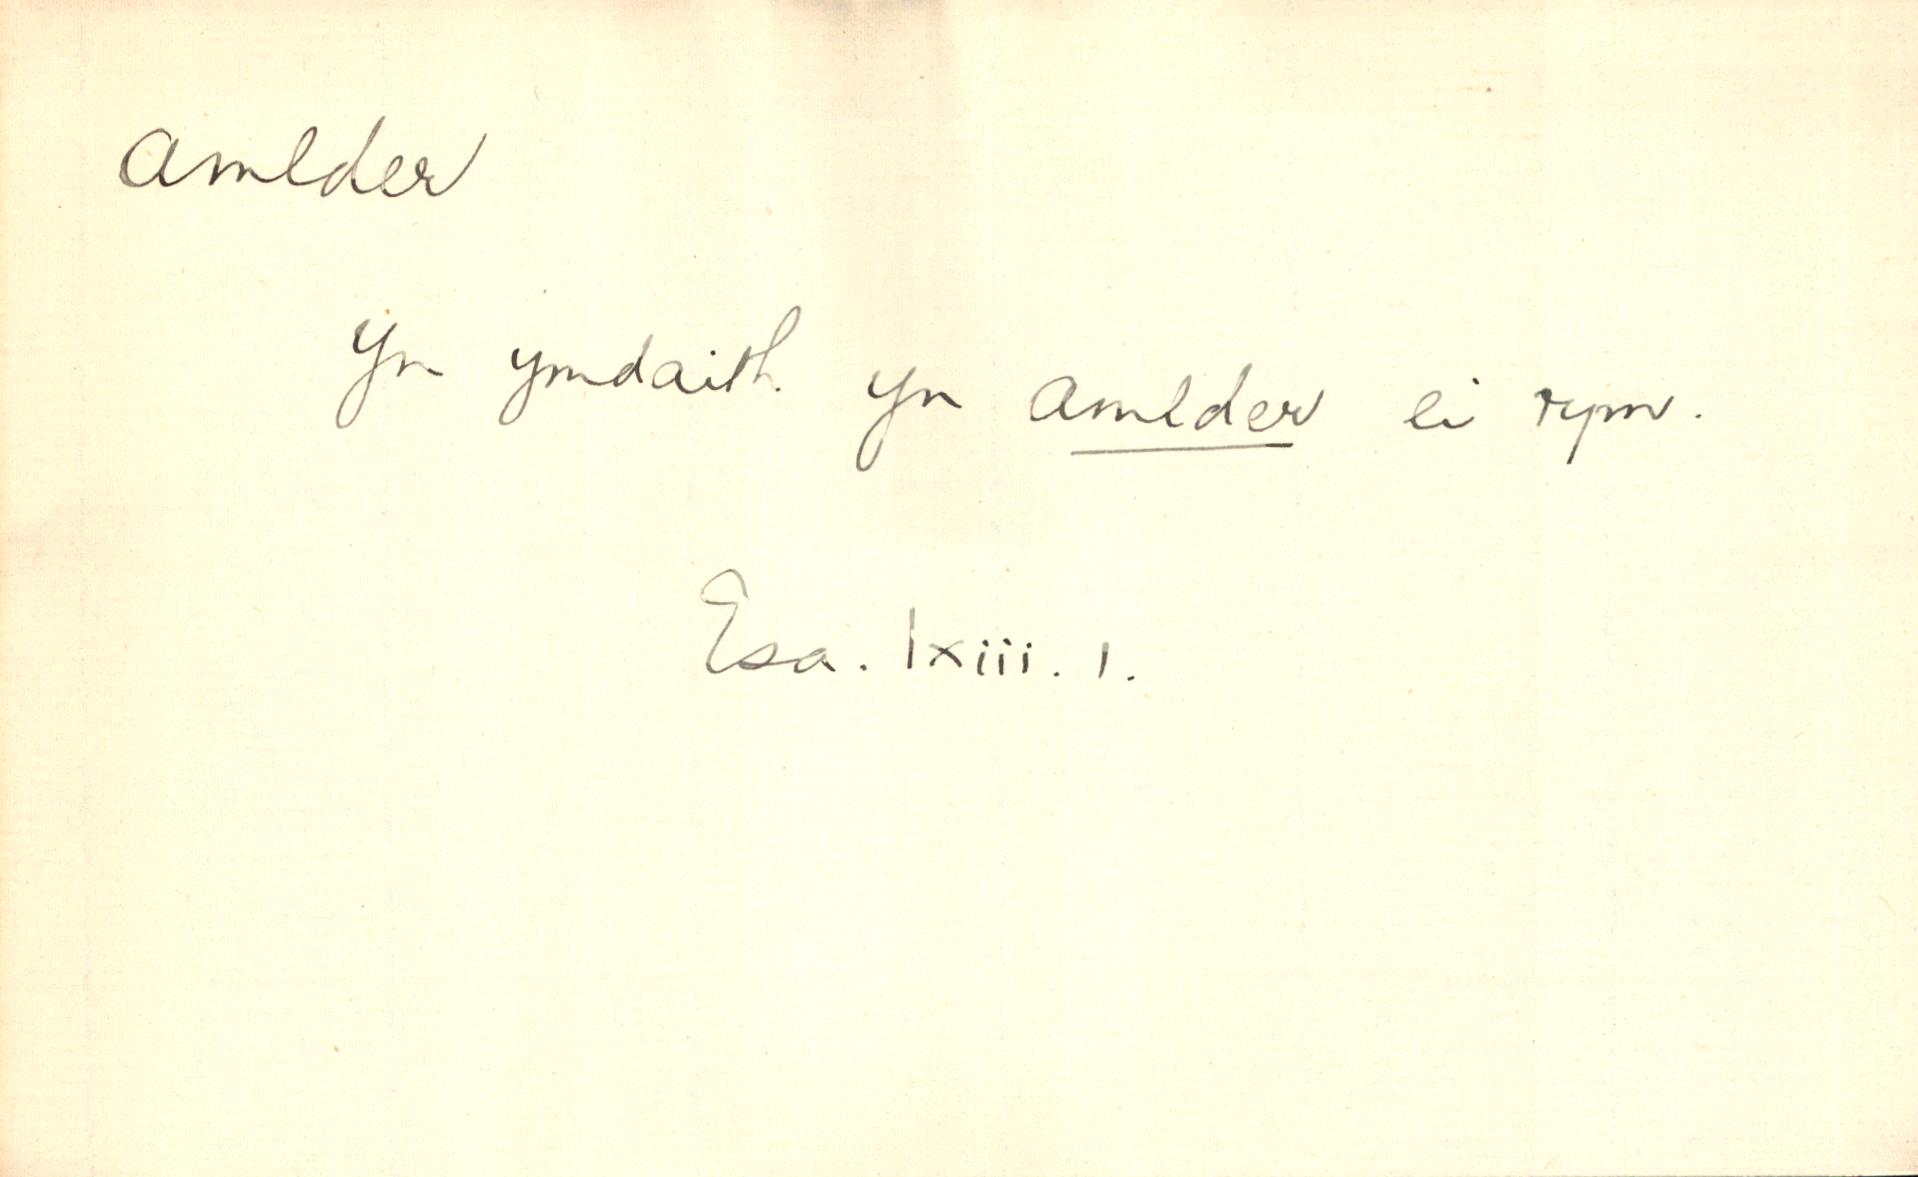 Amlder
Yn ymdaith yn amlder ei rym.
Esa. lxiii. 1.